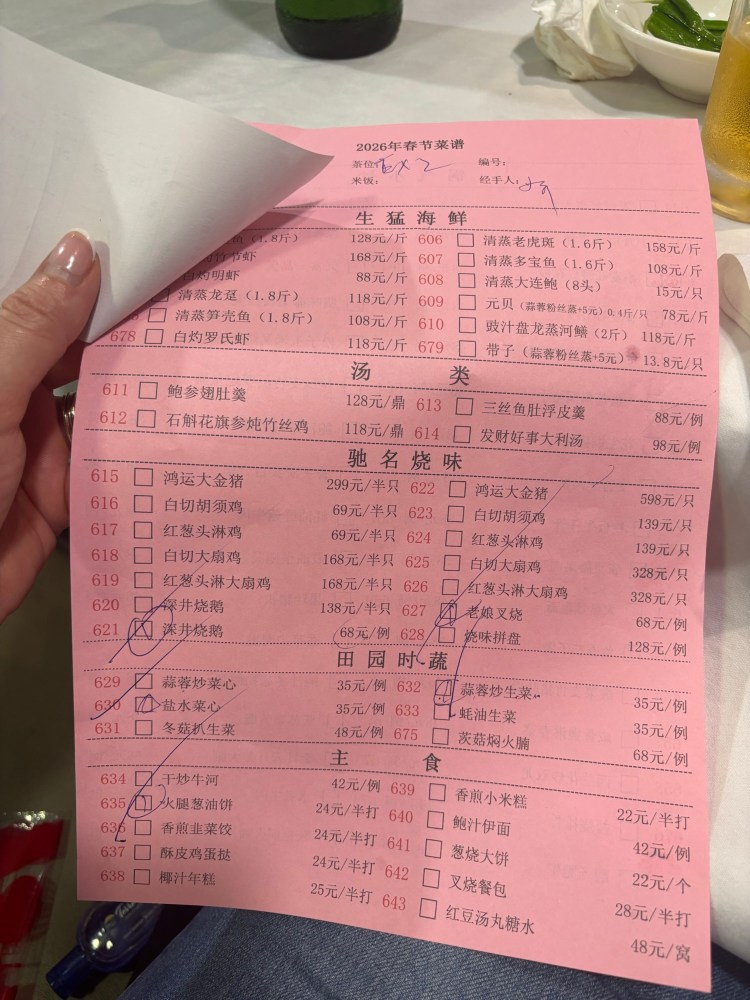 2026年春节菜谱
茶位: 编号:
米饭: 经手人:
生猛海鲜
鱼（1.8斤） 128元/斤 606 清蒸老虎斑（1.6斤） 158元/斤
竹节虾 168元/斤 607 清蒸多宝鱼（1.6斤） 108元/斤
白灼明虾 88元/斤 608 清蒸大连鲍（8头） 15元/只
清蒸龙趸（1.8斤） 118元/斤 609 元贝（蒜蓉粉丝蒸+5元）0.4斤/只 78元/斤
清蒸笋壳鱼（1.8斤） 108元/斤 610 豉汁盘龙蒸河鳝（2斤） 118元/斤
678 白灼罗氏虾 118元/斤 679 带子（蒜蓉粉丝蒸+5元） 13.8元/只
汤类
611 鲍参翅肚羹 128元/鼎 613 三丝鱼肚浮皮羹 88元/例
612 石斛花旗参炖竹丝鸡 118元/鼎 614 发财好事大利汤 98元/例
驰名烧味
615 鸿运大金猪 299元/半只 622 鸿运大金猪 598元/只
616 白切胡须鸡 69元/半只 623 白切胡须鸡 139元/只
617 红葱头淋鸡 69元/半只 624 红葱头淋鸡 139元/只
618 白切大扇鸡 168元/半只 625 白切大扇鸡 328元/只
619 红葱头淋大扇鸡 168元/半只 626 红葱头淋大扇鸡 328元/只
620 深井烧鹅 138元/半只 627 老娘叉烧 68元/例
621 深井烧鹅 68元/例 628 烧味拼盘 128元/例
田园时蔬
629 蒜蓉炒菜心 35元/例 632 蒜蓉炒生菜 35元/例
630 盐水菜心 35元/例 633 蚝油生菜 35元/例
631 冬菇扒生菜 48元/例 675 茨菇焖火腩 68元/例
主食
634 干炒牛河 42元/例 639 香煎小米糕 22元/半打
635 火腿葱油饼 24元/半打 640 鲍汁伊面 42元/例
636 香煎韭菜饺 24元/半打 641 葱烧大饼 22元/个
637 酥皮鸡蛋挞 24元/半打 642 叉烧餐包 28元/半打
638 椰汁年糕 25元/半打 643 红豆汤丸糖水 48元/窝